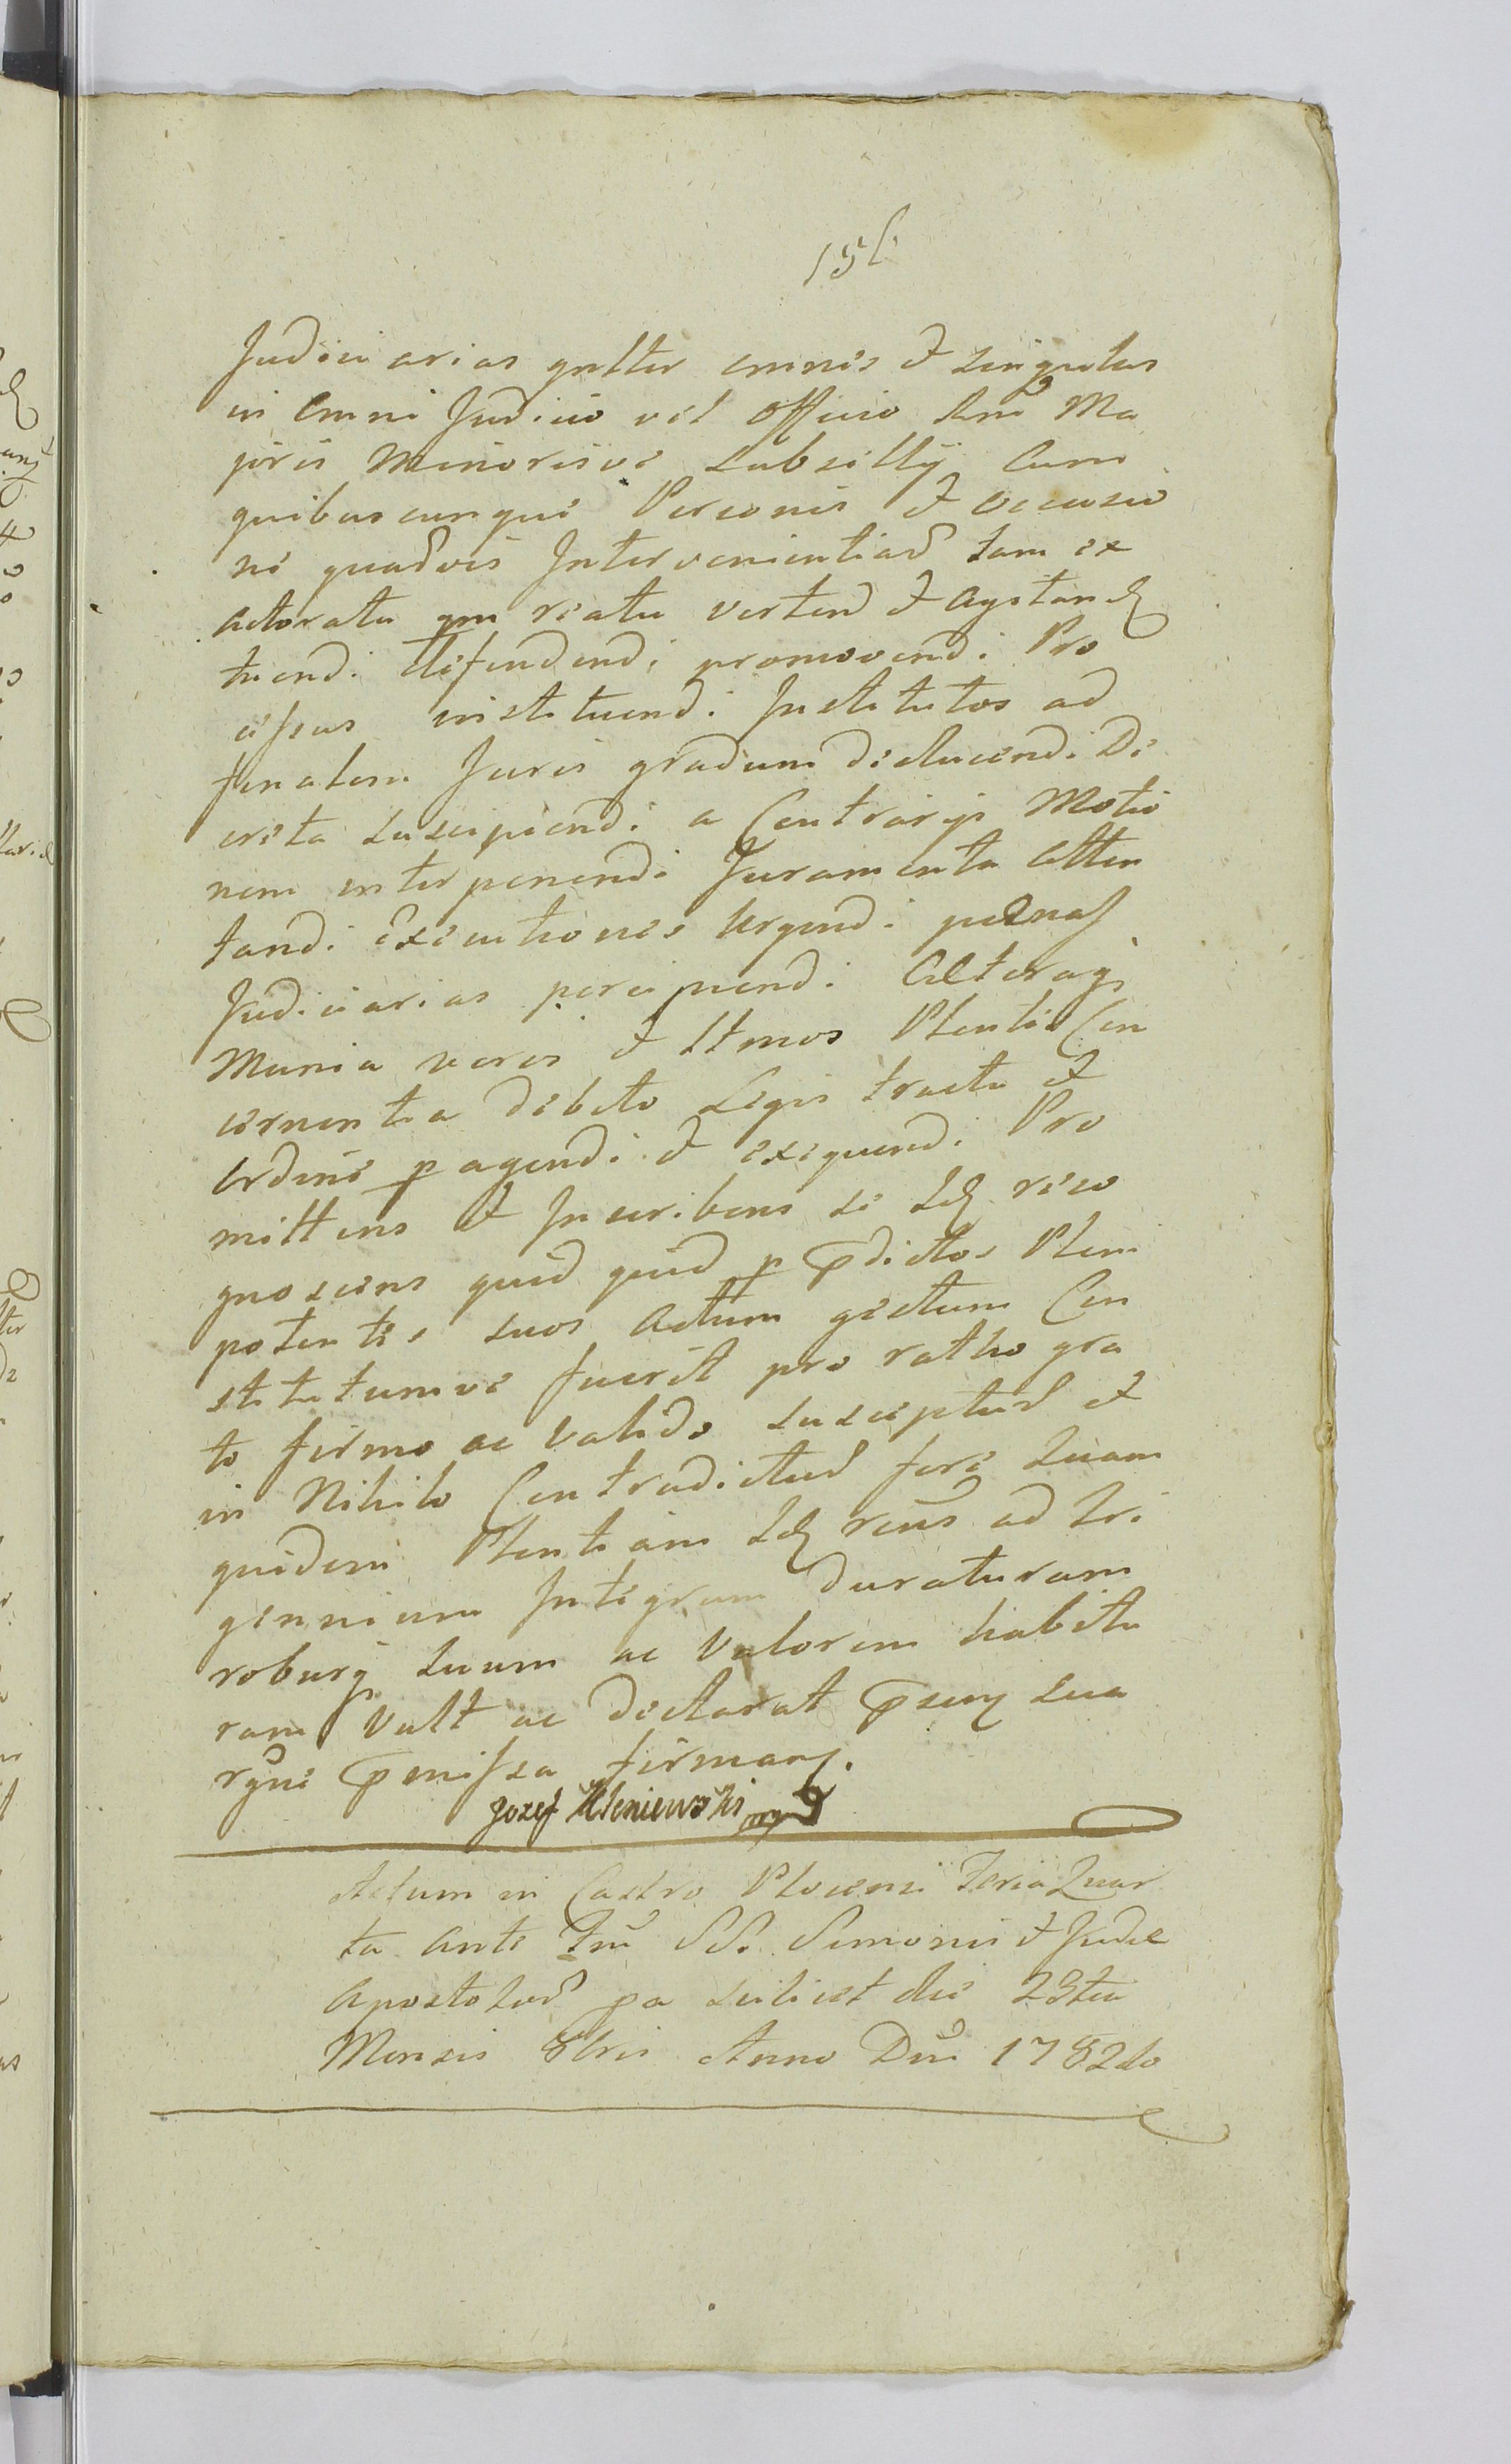 Judiciarias gnlter omnes et singulas
in omni Judicio vel Officio Rni Ma
joris Minorisve Subsellij Cum
quibuscunque Personis et occasio
ne quadvis Intervenientiad tam ex
actoratu qm reatu vertend et agitand
tuendi defendendi promovendi Pro
cessus instituendi Institutos ad
finalem Juris gradum deducendi De
creta suscipiendi a Contrarijs Motio
nem interponendi Juramenta Atten
tandi Executiones urgendi poenas
Judiciarias percipiendi Alteraq
Munia veros et ltmos Plentes Con
cernentia debito Legis tractu et
Ordine pagendi et exequendi Pro
mittens et Inscribens se idq reco
gnoscens quid quid p pdictos Pleni
potentes suos actum gestum Con
stitutumve fuerit pro ratho gra
to firmo ac valido suscepturd et
in Nihilo Contradicturd fore Quam
quidem Plentiam idq rcns ad tri
gennium Integrum duraturam
roburq suum ac Valorem habitu
ram Vult ac declarat psenq sua
rgne pmissa firmans.
Jozef Kleniewski mp
Actum in Castro Plocensi Feria Quar
ta Ante Fm SS. Simonis et Judae
Apostolord pa scilicet die 23tia
Mensis 8bris Anno Dni 1782do